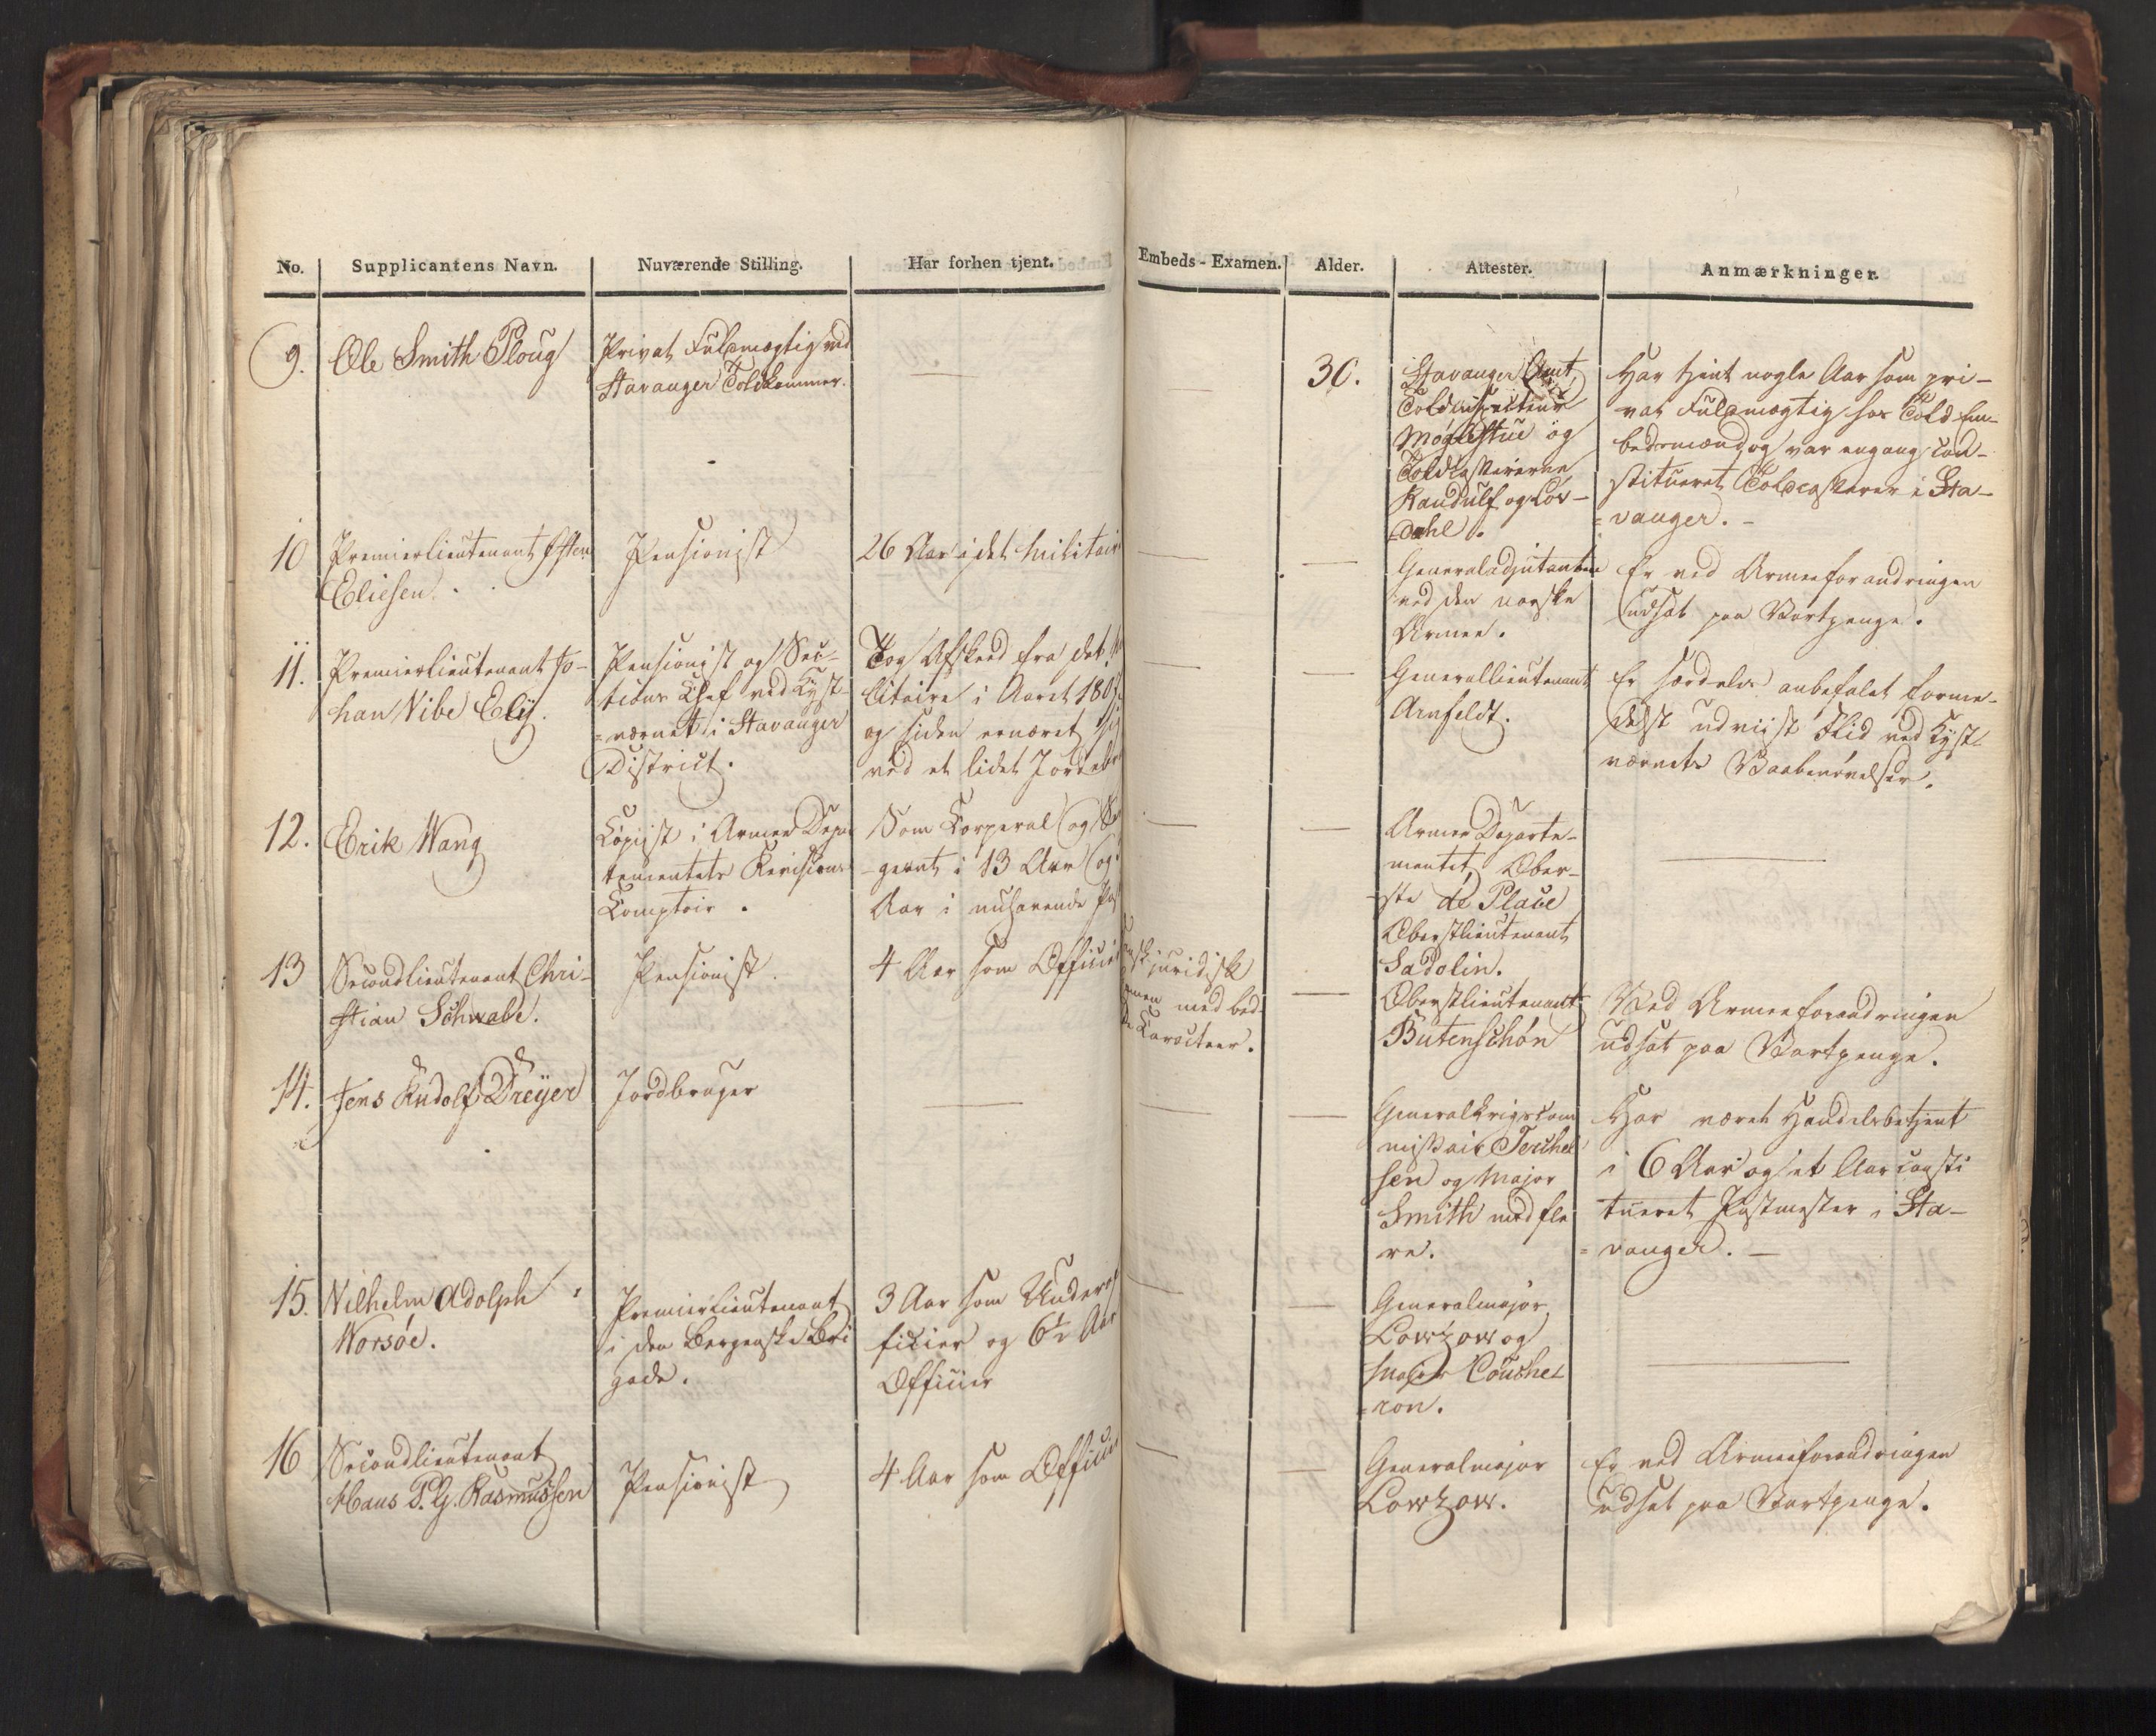 No.
Supplicantens Navn.
Nuværende Stilling.
Har forhen tjent.
Embeds-Examen.
Alder.
Attester.
Anmærkninger.
9.
Ole Smith Ploug
Privat Fuldmægtig ved
Stavanger Toldkammer.
—
—
30.
Stavanger Amt,
Toldinspecteur
Møglestue og
Toldcasserererne
Randulf og Løv-
dahl.
Har tjent nogle Aar som pri-
vat Fuldmægtig hos Told Em-
bedsmænd og var engang con-
stitueret Toldcasserer i Sta-
=vanger. -
10
Premierlieutenant Østen
Eliesen.
Pensionist
26 Aar i det Militaire
—
—
Generaladjutanten
ved den norske
Armee.
Er ved Armeeforandringen
udsat paa Vartpenge.
11.
Premierlieutenant Jo-
han Vibe Ely.
Pensionist og Sec-
tions Chef ved Kyst-
=værnet i Stavanger
District.
Tog Afskeed fra det Mi
litaire i Aaret 180
og siden ernæret sig
ved et lidet Jordebr
—
—
Generallieutenant
Arnfeldt.
Er særdeles anbefalet forme-
delst udviist Flid ved Kyst-
værnets Vaabenøvelser.
12.
Erik Wang
Copiist i Armee Depar
tementets Revisions
Comptoir.
Som Corporal og Ser
-geant i 13 Aar og
Aar i nuhavende Post
—
—
Armee Departe-
mentet, Ober-
ste de Place
Oberstlieutenant
Sadolin.
—
13
Secondlieutenant Chri-
stian Schwabe.
Pensionist.
4 Aar som Officier
nsk juridisk
men med bed-
ste Caracteer.
—
Oberstlieutenant
Butenschøn
Ved Armeeforandringen
udsat paa Vartpenge.
14.
Jens Rudolf Dreyer
Jordbruger
—
—
—
Generalkrigscom
missair Terchel
sen og Major
Smith med fle
re.
Har været Handelsbetjent
i 6 Aar og et Aar consti
tueret Postmester i Sta-
=vanger. —
15.
Vilhelm Adolph
Worsøe.
Premierlieutenant
i den Bergenske Bri
gade.
3 Aar som Underof
ficier og 6½ Aar
Officier
—
—
Generalmajor
Lowzow og
Major Couche
=ron.
—
16
Secondlieutenant
Hans P. G. Rasmussen
Pensionist
4 Aar som Officier
—
—
Generalmajor
Lowzow.
Er ved Armeeforandringen
udsat paa Vartpenge.